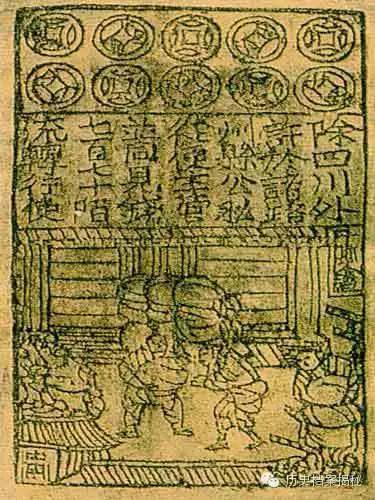 除四川外
許於諸路
州縣公私
從便主管
並同見錢
七百七十陌
流轉行使
历史档案揭秘